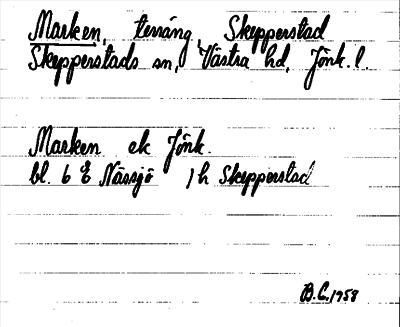 Marken, terräng, Skepperstad
Skepperstads sn, Västra hd, Jönk. l.
Marken ek Jönk.
bl. 6 E Nässjö 1 h Skepperstad
B.C. 1958